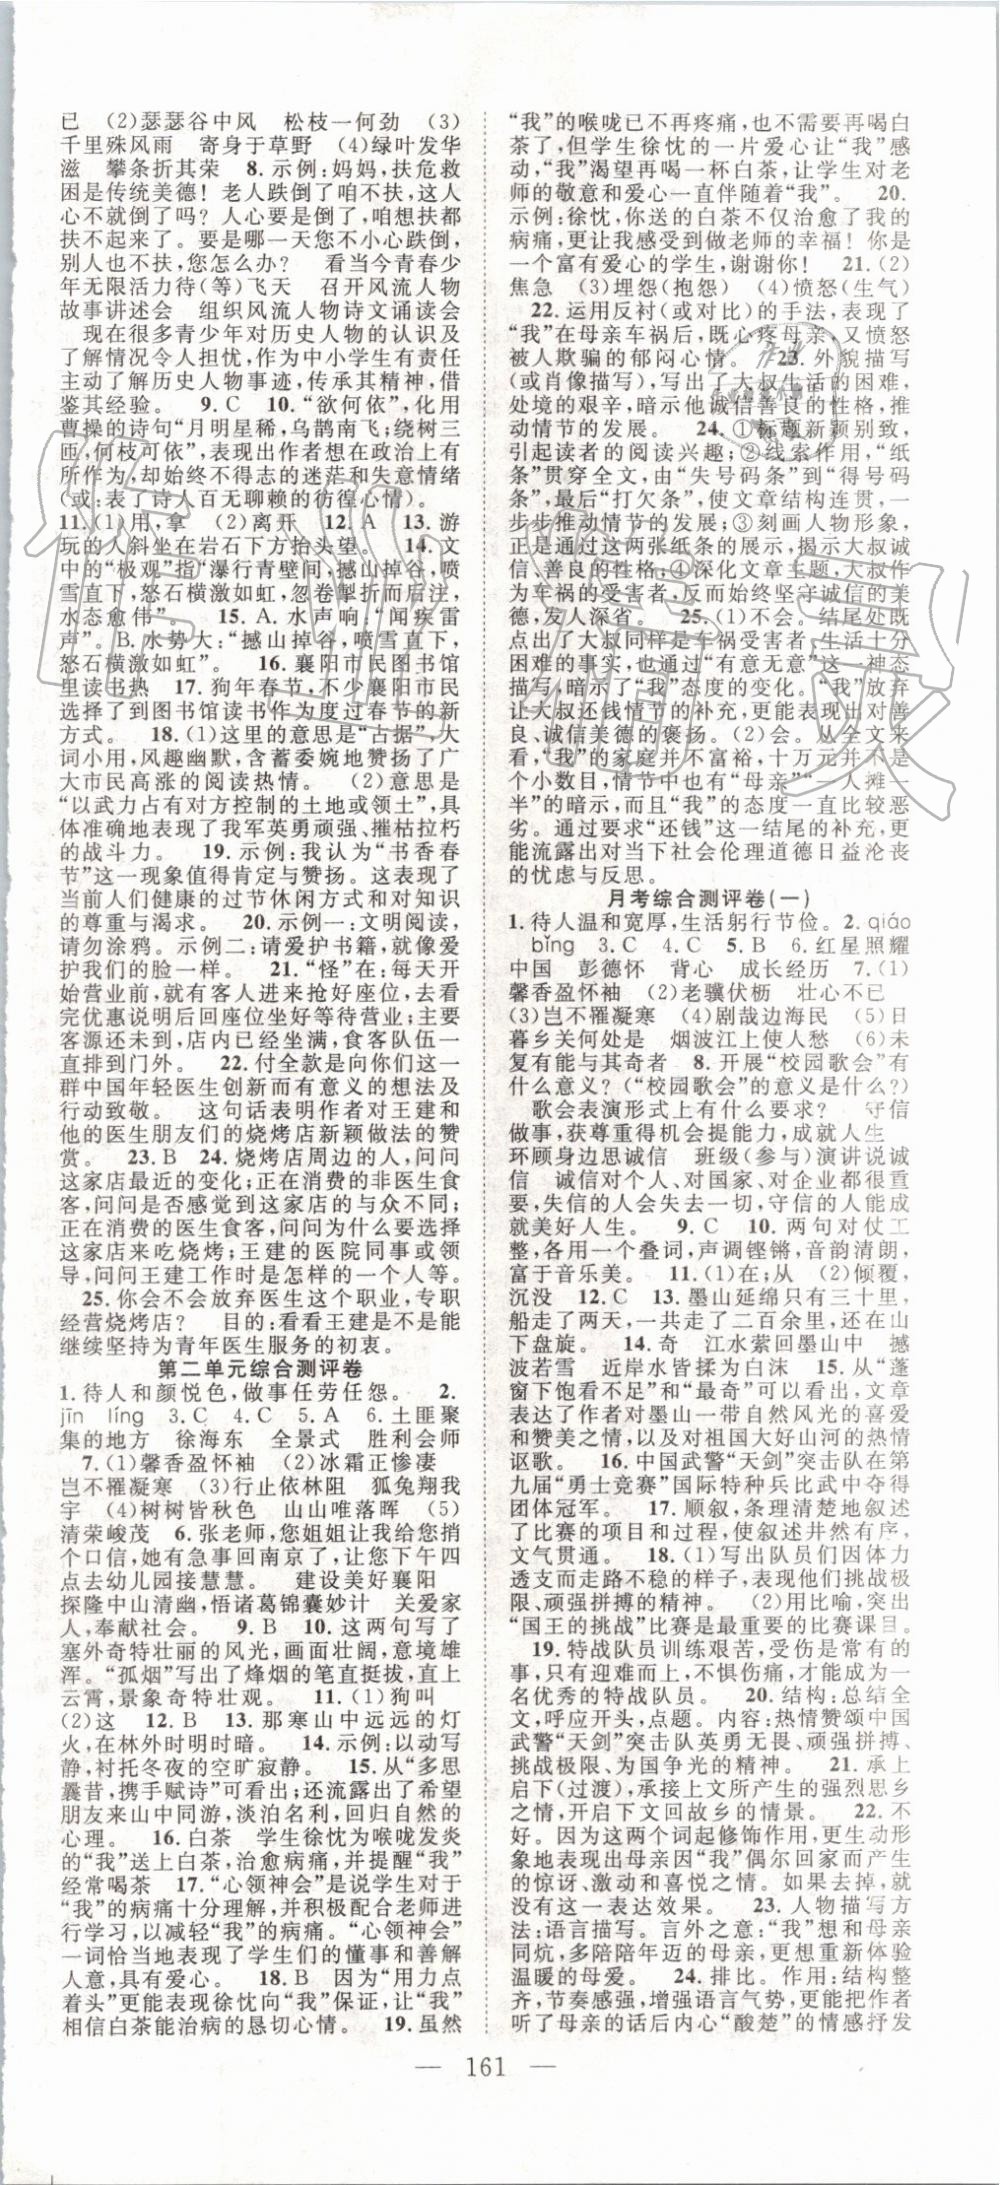 已　(2)瑟瑟谷中风　松枝一何劲　(3)
千里殊风雨　寄身于草野　(4)绿叶发华
滋　攀条折其荣　8. 示例:妈妈,扶危救
困是传统美德!老人跌倒了咱不扶,这人
心不就倒了吗?人心要是倒了,咱想扶都
扶不起来了。要是哪一天您不小心跌倒,
别人也不扶,您怎么办?　看当今青春少
年无限活力待(等)飞天　召开风流人物
故事讲述会　组织风流人物诗文诵读会
　现在很多青少年对历史人物的认识及
了解情况令人担忧,作为中小学生有责任
了解历史人物事迹,传承其精神,借
鉴其经验。　9. C　10.“欲何依”,化用
曹操的诗句“月明星稀,乌鹊南飞;绕树三
匝,何枝可依”,表现出作者想在政治上有
所作为,却又不得志的迷茫和失意情绪
(或:表了诗人百无聊赖的彷徨心情)。
11. (1)用,拿　(2)离开　12. A　13. 游
玩的人斜坐在岩石下方抬头望。　14. 文
中的“极观”指“瀑行青壁间,撼山掉谷,喷
雪直下,怒石横激如虹,忽卷掣折而后注,
水态愈伟”。　15. A. 水声响:“闻疾雷
声”。B. 水势大:“撼山掉谷,喷雪直下,
怒石横激如虹”。　16. 襄阳市民图书馆
里读书热　17. 狗年春节,不少襄阳市民
选择了到图书馆读书作为度过春节的新
方式。　18. (1)这里的意思是“占据”,大
词小用,风趣幽默,含蓄委婉地赞扬了广
大市民高涨的阅读热情。　(2)意思是
“以武力占有对方控制的土地或领土”,具
体准确地表现了我军英勇顽强、摧枯拉朽
的战斗力。　19. 示例:我认为“书香春
节”这一现象值得肯定与赞扬。它表现了
当前人们健康的过节休闲方式和对知识
的尊重与渴求。　20. 示例一:文明阅读,
请勿涂鸦。示例二:请爱护书籍,就像爱
护我们的脸一样。　21.“怪”在:每天开
始营业前,食客进来抢好座位,坐好后看
完优惠说明后回座位坐好等待营业;主要
客源还未到,店内已经坐满,食客队伍一
直排到门外。　22. 付会是向你们这一
群中国年轻医生创新而有意义的想法及
行动致敬。　这句话表明作者对王建和
他的医生朋友们的烧烤店新颖做法的赞
赏。　23. B　24. 烧烤店周边的人,问问
这家店最近的变化;正在消费的普通食
客,问问他知道的这家店的其他情况;
正在消费的医生食客,问问为什么要选择
这家店来吃烧烤;王建的医院同事或领
导,问问王建工作时是怎样的一个人等。
　25. 你会不会放弃医生这个职业,专职
经营烧烤店?　目的:看看王建是不是能
继续坚持为青年医生服务的初衷。
第二单元综合测评卷
1. 待人和颜悦色,做事任劳任怨。　2.
jīn　líng　3. C　4. C　5. A　6. 土匪聚
集的地方　徐海东　全景式　胜利会师
　7. (1)馨香盈怀袖　(2)冰霜正惨凄
岂不罹凝寒　(3)行止依林阻　狐兔翔我
宇　(4)树树皆秋色　山山唯落晖　(5)
清荣峻茂　8. 张老师,您姐姐让我给您捎
个口信,她有急事回南京了,让您下午四
点去幼儿园接慧慧。　建设美好襄阳
探隆中山清幽,悟诸葛锦囊妙计　关爱家
人,奉献社会。　9. C　10. 这两句写了
塞外奇特壮丽的风光,画面壮阔,意境雄
浑。“孤烟”写出了烽烟的笔直挺拔,直上
云霄,景象奇特壮观。　11. (1)狗叫
(2)这　12. B　13. 那寒山中远远的灯
火,在林外时明时暗。　14. 示例:以动写
静,衬托冬夜的空旷寂静。　15. 从“多思
曩昔,携手赋诗”可看出;还流露出了希望
朋友来山中同游,淡泊名利,回归自然的
心理。　16. 白茶　学生徐忱为喉咙发炎
的“我”送上白茶,治愈病痛,并提醒“我”
经常喝茶　17.“心领神会”是说学生对于
“我”的病痛十分理解,并积极配合老师的
进行学习,以减轻“我”的病痛。“心领神会”
一词恰当地表现了学生们的懂事和善解
人意,具有爱心。　18. B　因为“用力点
着头”更能表现徐忱向“我”保证,让“我”
相信白茶能治病的恳切心情。　19. 虽然
“我”的喉咙已不再疼痛,也不需要再喝白
茶了,但学生徐忱的一片爱心让“我”感
动,“我”渴望再喝一杯白茶,让学生对老
师的敬意和爱心一直伴随着“我”。　20.
示例:徐忱,你送的白茶不仅治愈了我的
病痛,更让我感受到做老师的幸福!你是
一个富有爱心的学生,谢谢你!　21. (2)
焦急　(3)埋怨(抱怨)　(4)愤怒(生气)
22. 运用反衬(或对比)的手法,表现了
“我”在母亲车祸后,既心疼母亲,又愤怒
被人欺骗的郁闷心情。　23. 外貌描写
(或肖像描写),写出了大叔生活的困难,
处境的艰辛,暗示他诚信善良的性格,推
动情节的发展。　24. ①标题新颖别致,
引起读者的阅读兴趣;②线索作用,“纸
条”贯穿全文,由“失号码条”到“得号码
条”,最后“打欠条”,使文章结构连贯,一
步步推动情节的发展;③刻画人物形象,
正是通过这两张纸条的展示,揭示大叔诚
信、善良的性格;④深化文章主题,大叔作
为车祸的受害者,能始终坚守诚信的美
德,发人深省。　25. (1)不会。结尾处既
点出了大叔同样是车祸受害者,生活十分
困难的事实,也通过“有意无意”这一神态
描写,暗示了“我”态度的变化。“我”放弃
让大叔还钱情节的补充,更能表现出对善
良、诚信美德的褒扬。(2)会。从全文来
看,“我”的家庭并不富裕,十万元并不是
个小数目,情节中也有“母亲”“一人摊一
半”的暗示,而且“我”的态度一直比较恶
劣。通过要求“还钱”这一结尾的补充,更
能流露出对当下社会伦理道德日益沦丧
的忧虑与反思。
月考综合测评卷(一)
1. 待人温和宽厚,生活躬行节俭。2. qiáo
bǐng　3. C　4. C　5. B　6. 红星照耀
中国　彭德怀　背心　成长经历　7. (1)
馨香盈怀袖　(2)老骥伏枥　壮心不已
(3)岂不罹凝寒　(4)剧哉边海民　(5)日
暮乡关何处是　烟波江上使人愁　(6)未
复有能与其奇者　8. 开展“校园歌会”有
什么意义?(“校园歌会”的意义是什么?)
　歌会表演形式上有什么要求?　守信
做事,获尊重得机会提能力,成就人生
环顾身边思诚信　班级(参与)演讲说诚信
　诚信对个人、对国家、对企业都很重
要,失信的人会失去一切,守信的人能成
就美好人生。　9. C　10. 两句对仗工
整,各用一个叠词,声调铿锵,音韵清朗,
富于音乐美。　11. (1)在;从　(2)倾覆,
沉没　12. C　13. 墨山延绵只有三十里,
船走了两天,一共走了二百余里,还在山
下盘旋。　14. 奇　江水萦回墨山中　撼
波若雪　近岸水皆揉为白沫　15. 从“蓬
窗下饱看无厌”和“最奇”可以看出,文章
表达了作者对墨山一带自然风光的喜爱
和赞美之情,以及对祖国大好山河的热情
讴歌。　16. 中国武警“天剑”突击队在第
九届“勇士竞赛”国际特种兵比武中夺得
团体冠军。　17. 顺叙,条理清楚地叙述
了比赛的项目和过程,使叙述井然有序,
文气贯通。　18. (1)写出队员们因体力
透支而走路不稳的样子,表现他们挑战极
限、顽强拼搏的精神。　(2)用比喻,突出
“国王的挑战”比赛是最重要的比赛课目。
　19. 特战队员训练艰苦,受伤是常有的
事情,只有迎难而上,不惧伤痛,才能成为
一名优秀的特战队员。　20. 结构:总结全
文,呼应开头,点题。内容:热情赞颂中国
武警“天剑”突击队英勇无畏、顽强拼搏、
挑战极限、为国争光的精神。　21. 承上
启下(过渡),承接上文所产生的强烈思乡
之情,开启下文回故乡的情景。　22. 不
好。因为这两个词起修饰作用,更生动形
象地表现出母亲因“我”偶尔回家而产生
的惊讶、激动和喜悦之情。如果去掉,就
没有这一表达效果。　23. 人物描写方
法:语言描写。言外之意:“我”想和母亲
同炕,多陪陪年迈的母亲,更重新体验
温暖的母爱。　24. 排比。作用:结构整
齐,节奏感强,增强语言气势,更把作者
听了母亲的话后内心“酸楚”的情感抒发
— 161 —